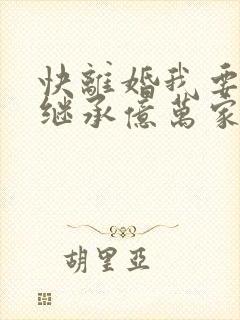 快離婚我要
继承億萬家
胡里亞